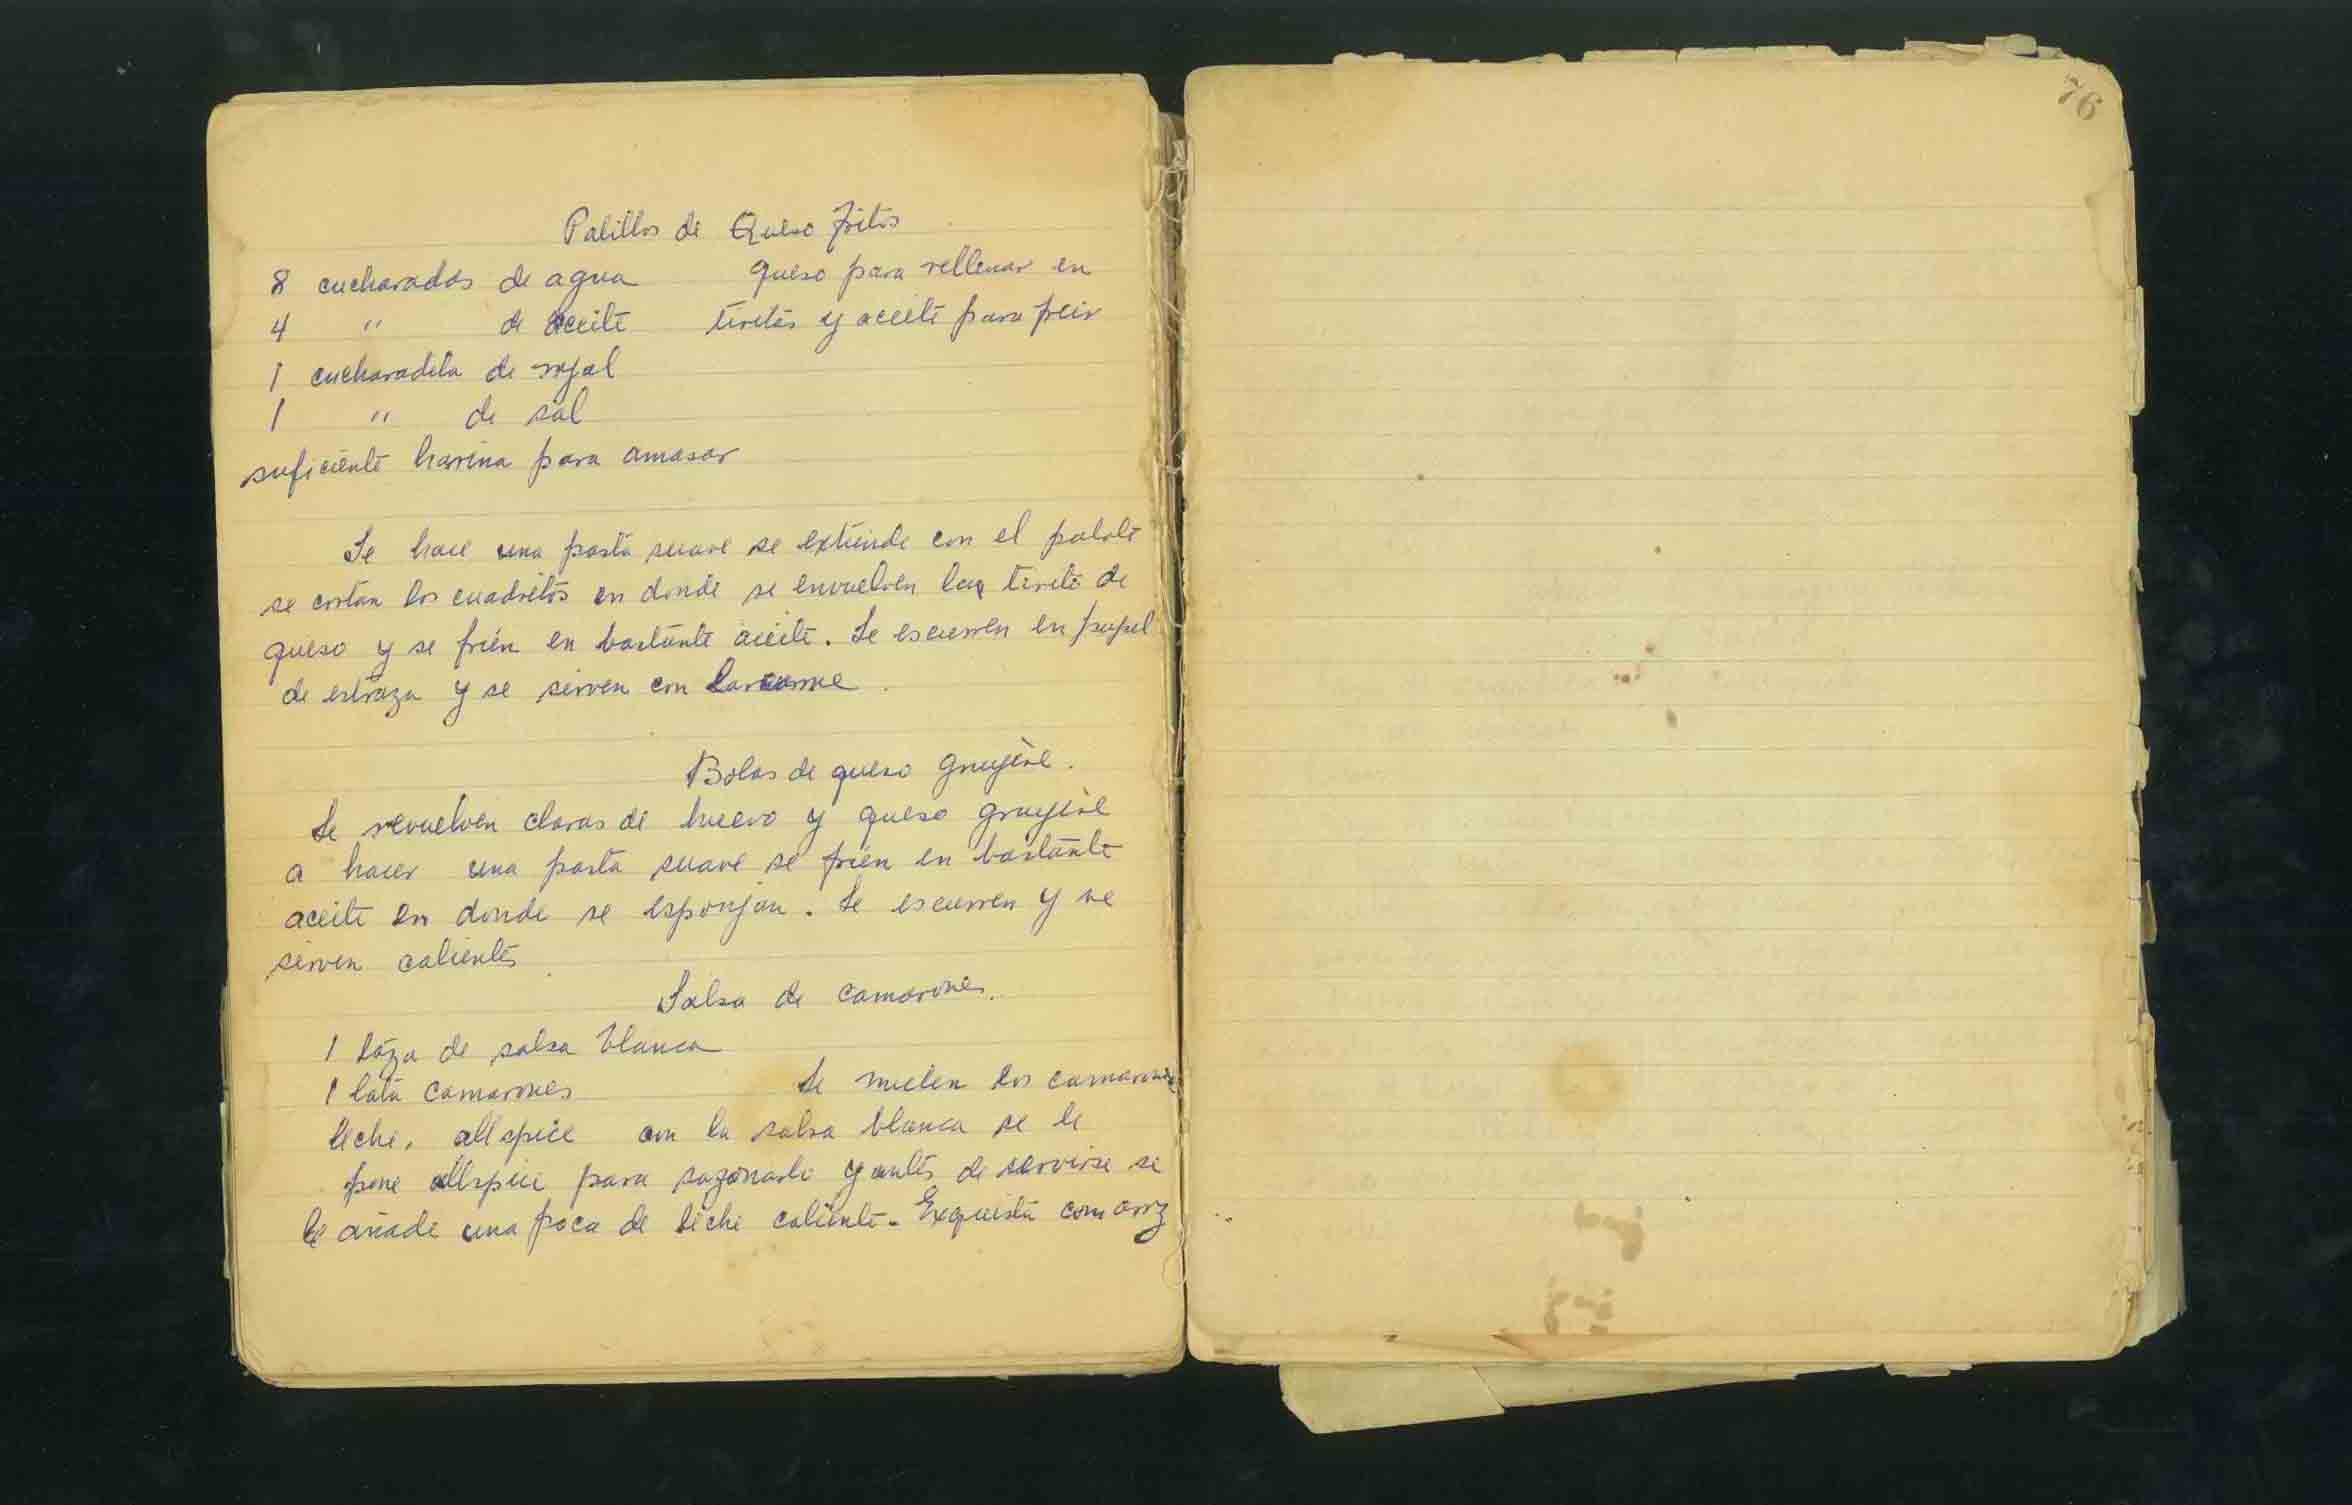 Palillos de Queso fritos
8 cucharadas de agua queso para rellenar en
4 " de aceite tiritas y aceite para freir
1 cucharadita de royal
1 " de sal
suficiente harina para amasar
Se hace una pasta suave se extiende con el palote
se cortan los cuadritos en donde se envuelven las tirita de
queso y se frien en bastante aceite. Se escurren en papel
de estraza y se sirven con la carne.
Bolas de queso gruyère.
Se revuelven claras de huevo y queso gruyère
a hacer una pasta suave se frien en bastante
aceite en donde se esponjan. Se escurren y se
sirven calientes
Salsa de camarones.
1 taza de salsa blanca
1 lata camarones Se muelen los camarones
leche, allspice con la salsa blanca se le
pone allspice para sazonarla y antes de servirse se
le añade una poca de leche caliente. Exquisita con arroz
76